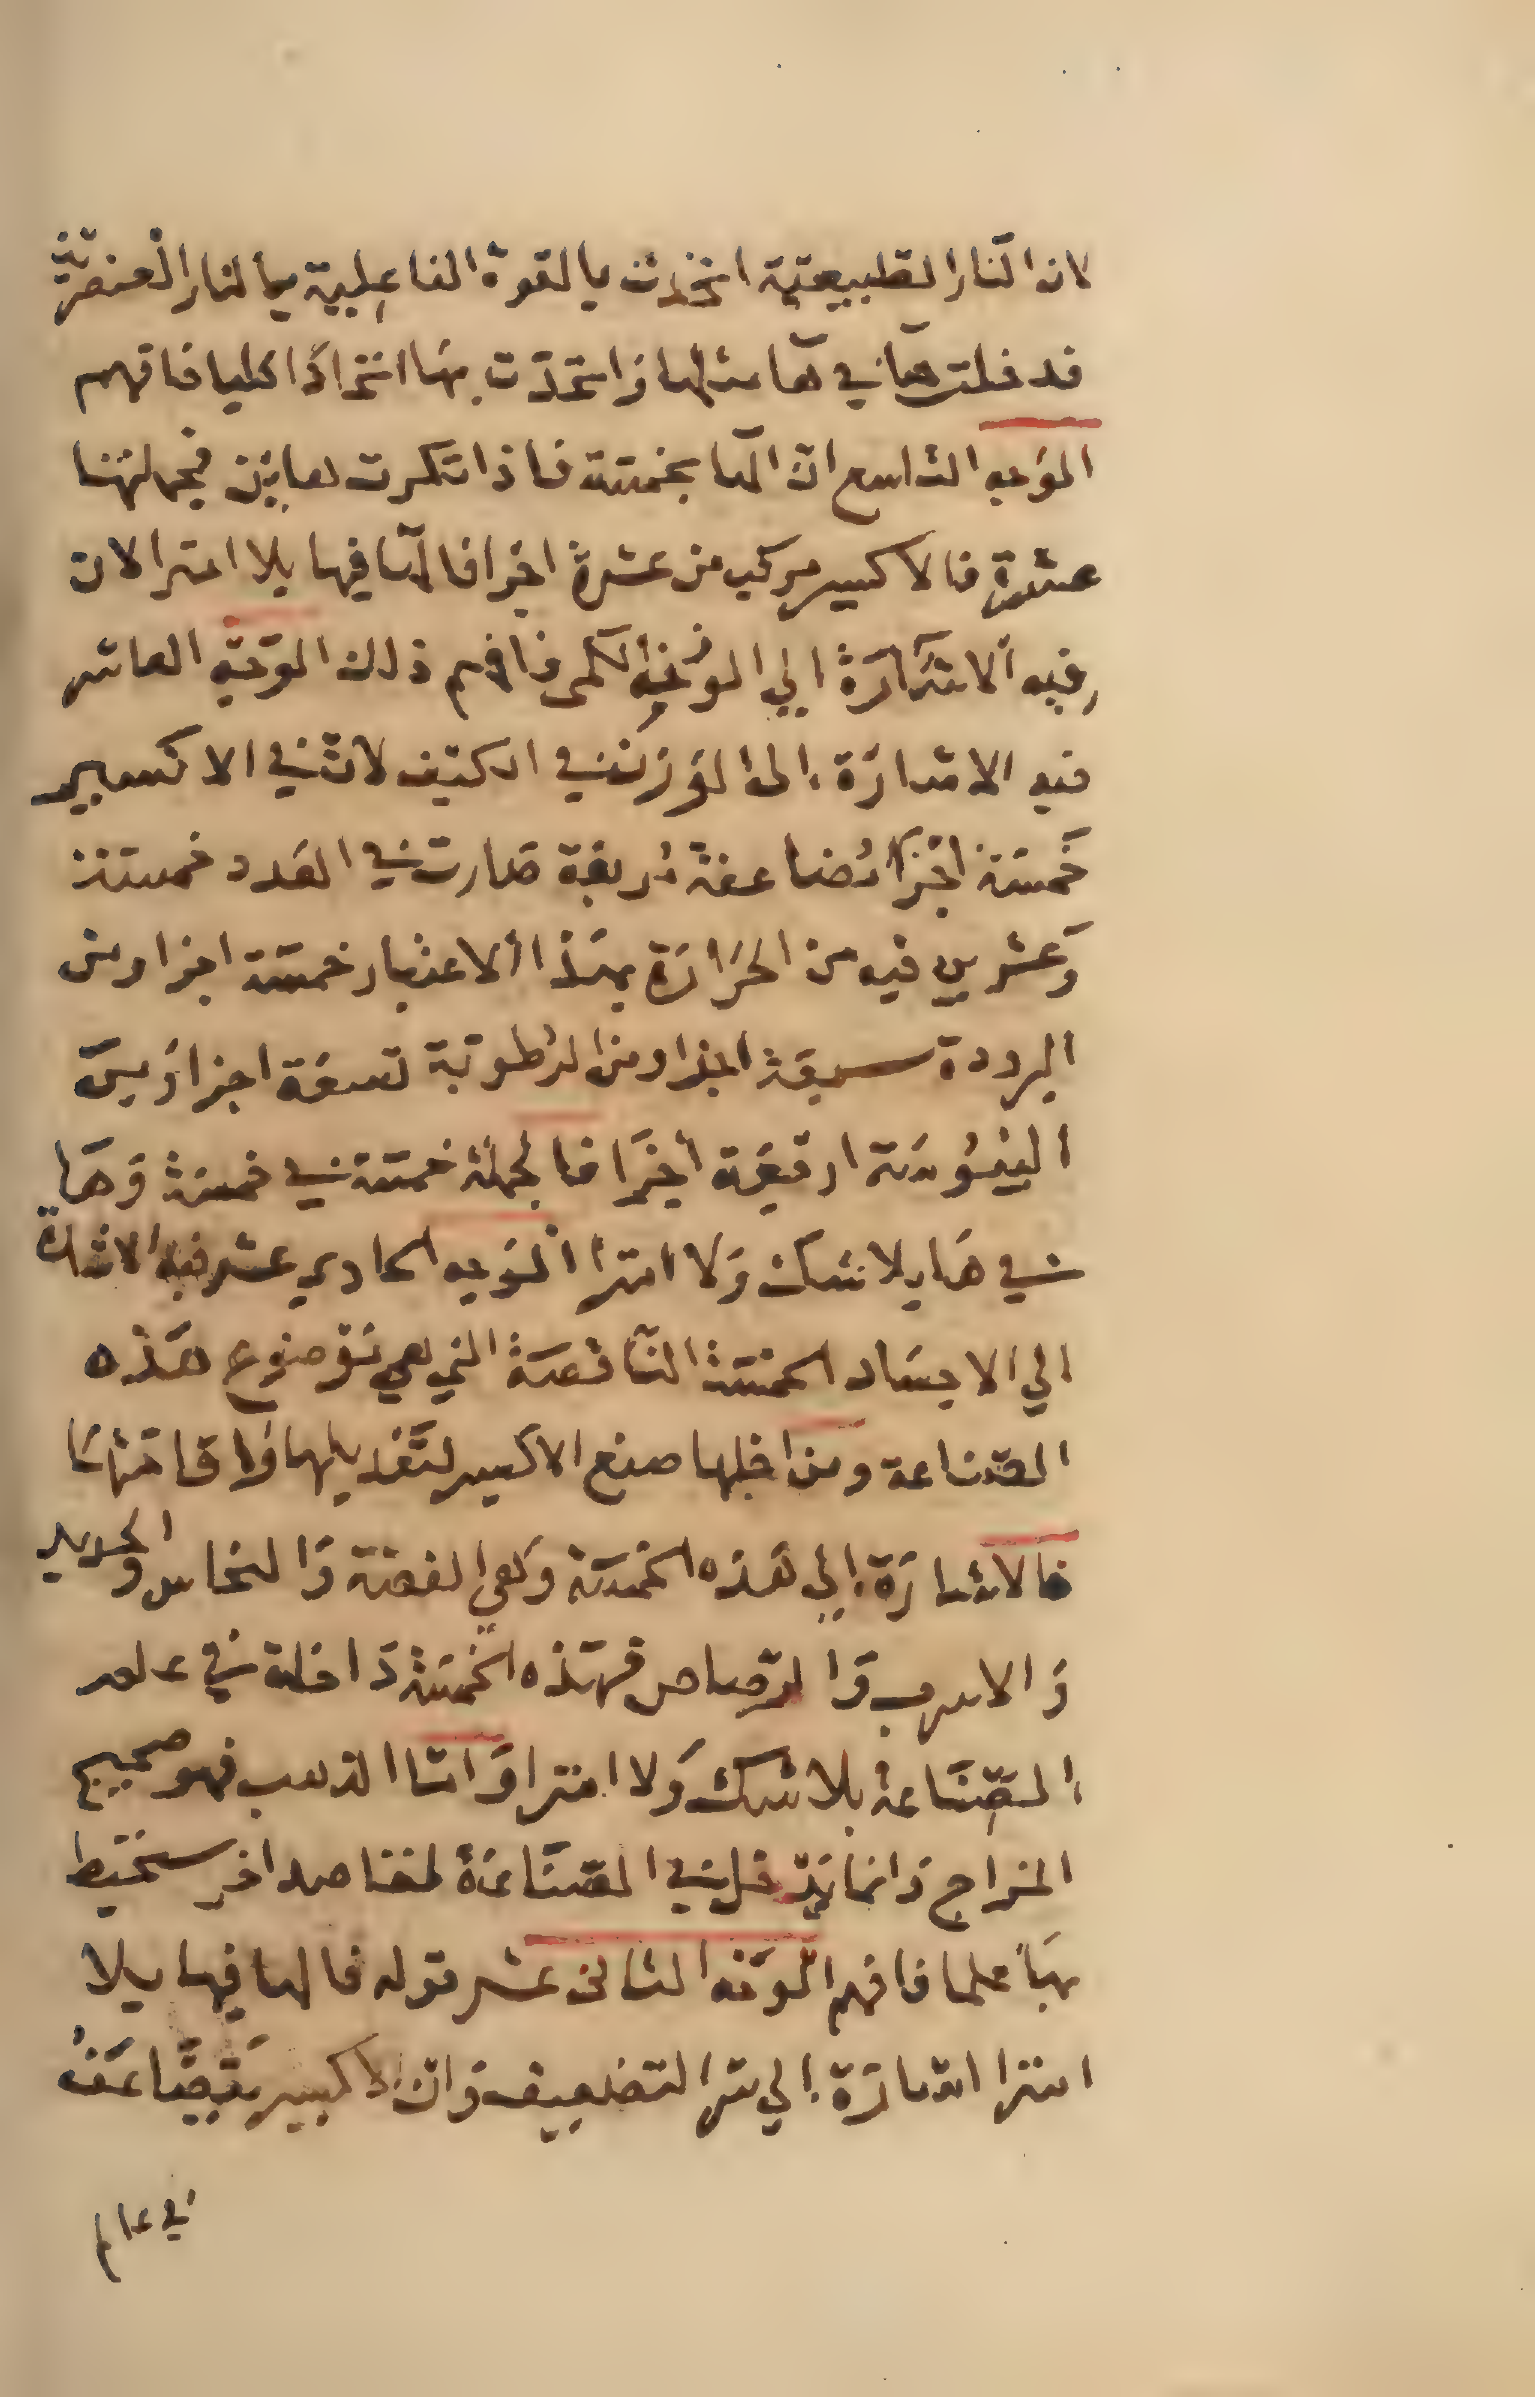 لان النار الطبيعية اتحدت بالقوة الفاعلية بالنار العنصرية
فدخلت هآ في هآ مثلها واتحدت بها اتحادًا كليا فافهم
الوجه التاسع ان الها بخمسة فاذا تكررت هاين فجملتها
عشرة فالاكسير مركب من عشرة اجزا فالها فيها بلا امترا لان
فيه الاشارة الي الوزن الكمي فافهم ذلك الوجه العاشر
فيه الاشارة الى الوزن في الكيف لان في الاكسير
خمسة اجزا مضاعفة مربعة صارت في العدد خمسة
وعشرين فيه من الحرارة بهذا الاعتبار خمسة اجزا ومن
البرودة سبعة اجزا ومن الرطوبة تسعة اجزا ومن
اليبوسة اربعة اجزا فالجملة خمسة في خمسة وها
في ها بلا شك ولا امترا الوجه الحادي عشر فيه الاشارة
الي الاجساد الخمسة الناقصة التي هي موضوع هذه
الصناعة ومن اجلها صنع الاكسير لتعديلها واقامتها
فالاشارة الي هذه الخمسة وهي الفضة والنحاس والحديد
والاسرب والرصاص فهذه الخمسة داخلة في عالم
الصناعة بلا شك ولا امترا واما الذهب فهو صحيح
المزاج وانما يدخل في الصناعة لمقاصد اخر ستحيط
بها علما فافهم الوجه الثاني عشر قوله فالها فيها بلا
امترا اشارة الي سر التضعيف وان الاكسير يتضاعف
في عالم